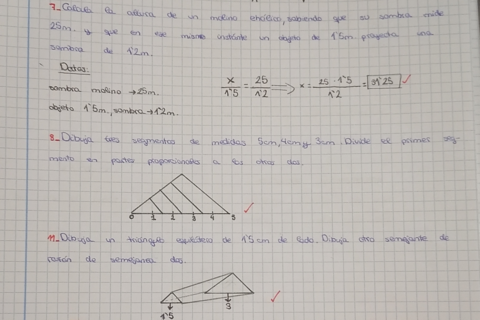 7_ Calcula la altura de un molino eólico, sabiendo que su sombra mide
25m. y que en ese mismo instante un objeto de 1'5m proyecta una
sombra de 1'2m.
Datos:
sombra molino → 25m.
objeto 1'5m, sombra → 1'2m.
x/1'5 = 25/1'2 ⟹ x = 25 · 1'5/1'2 = 31'25 ✓
8_ Dibuja tres segmentos de medidas 5cm, 4cm y 3cm. Divide el primer seg-
mento en partes proporcionales a los otros dos.
0 1 2 3 4 5 ✓
11_ Dibuja un triángulo equilátero de 1'5cm de lado. Dibuja otro semejante de
razón de semejanza dos.
1'5 3 ✓